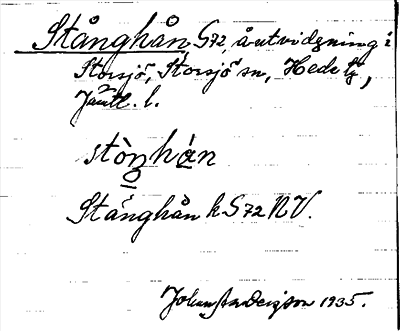 Stånghån, S72, åutvidgning i
Storsjö, Storsjö sn, Hede tg,
Jämtl. l.
stòŋhán
Stånghån k S72 NV.
Johan Anderzon 1935.